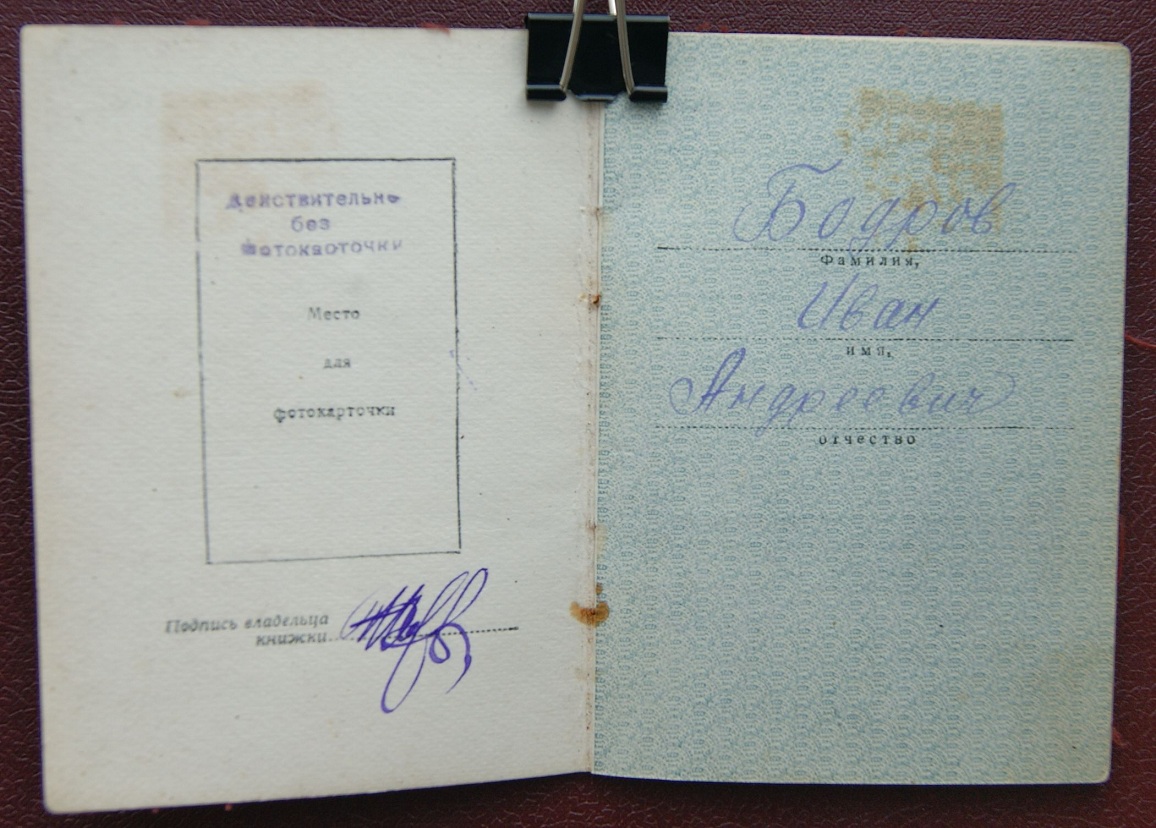 Действительно
без
фотокарточки
Место
для
фотокарточки
Подпись владельца
книжки
Бодров
фамилия,
Иван
имя,
Андреевич
отчество